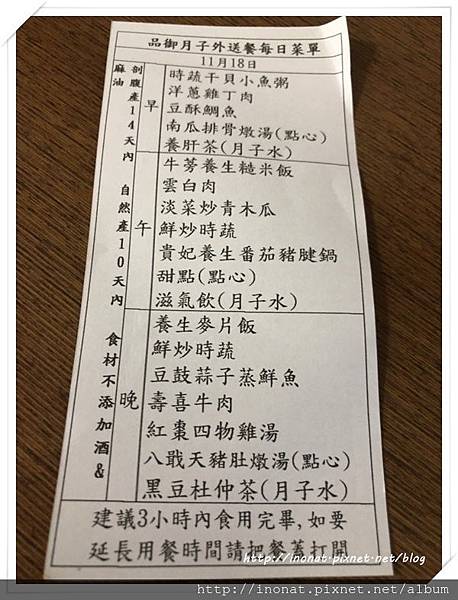 品御月子外送餐每日菜單
11月18日
剖腹產14天內 自然產10天內 食材不添加酒&
麻油
早
時蔬干貝小魚粥
洋蔥雞丁肉
豆酥鯛魚
南瓜排骨燉湯(點心)
養肝茶(月子水)
午
牛蒡養生糙米飯
雲白肉
淡菜炒青木瓜
鮮炒時蔬
貴妃養生番茄豬腱鍋
甜點(點心)
滋氣飲(月子水)
晚
養生麥片飯
鮮炒時蔬
豆鼓蒜子蒸鮮魚
壽喜牛肉
紅棗四物雞湯
八戢天豬肚燉湯(點心)
黑豆杜仲茶(月子水)
建議3小時內食用完畢,如要
延長用餐時間請把餐蓋打開
http://inonat.pixnet.net/blog
http://inonat.pixnet.net/album